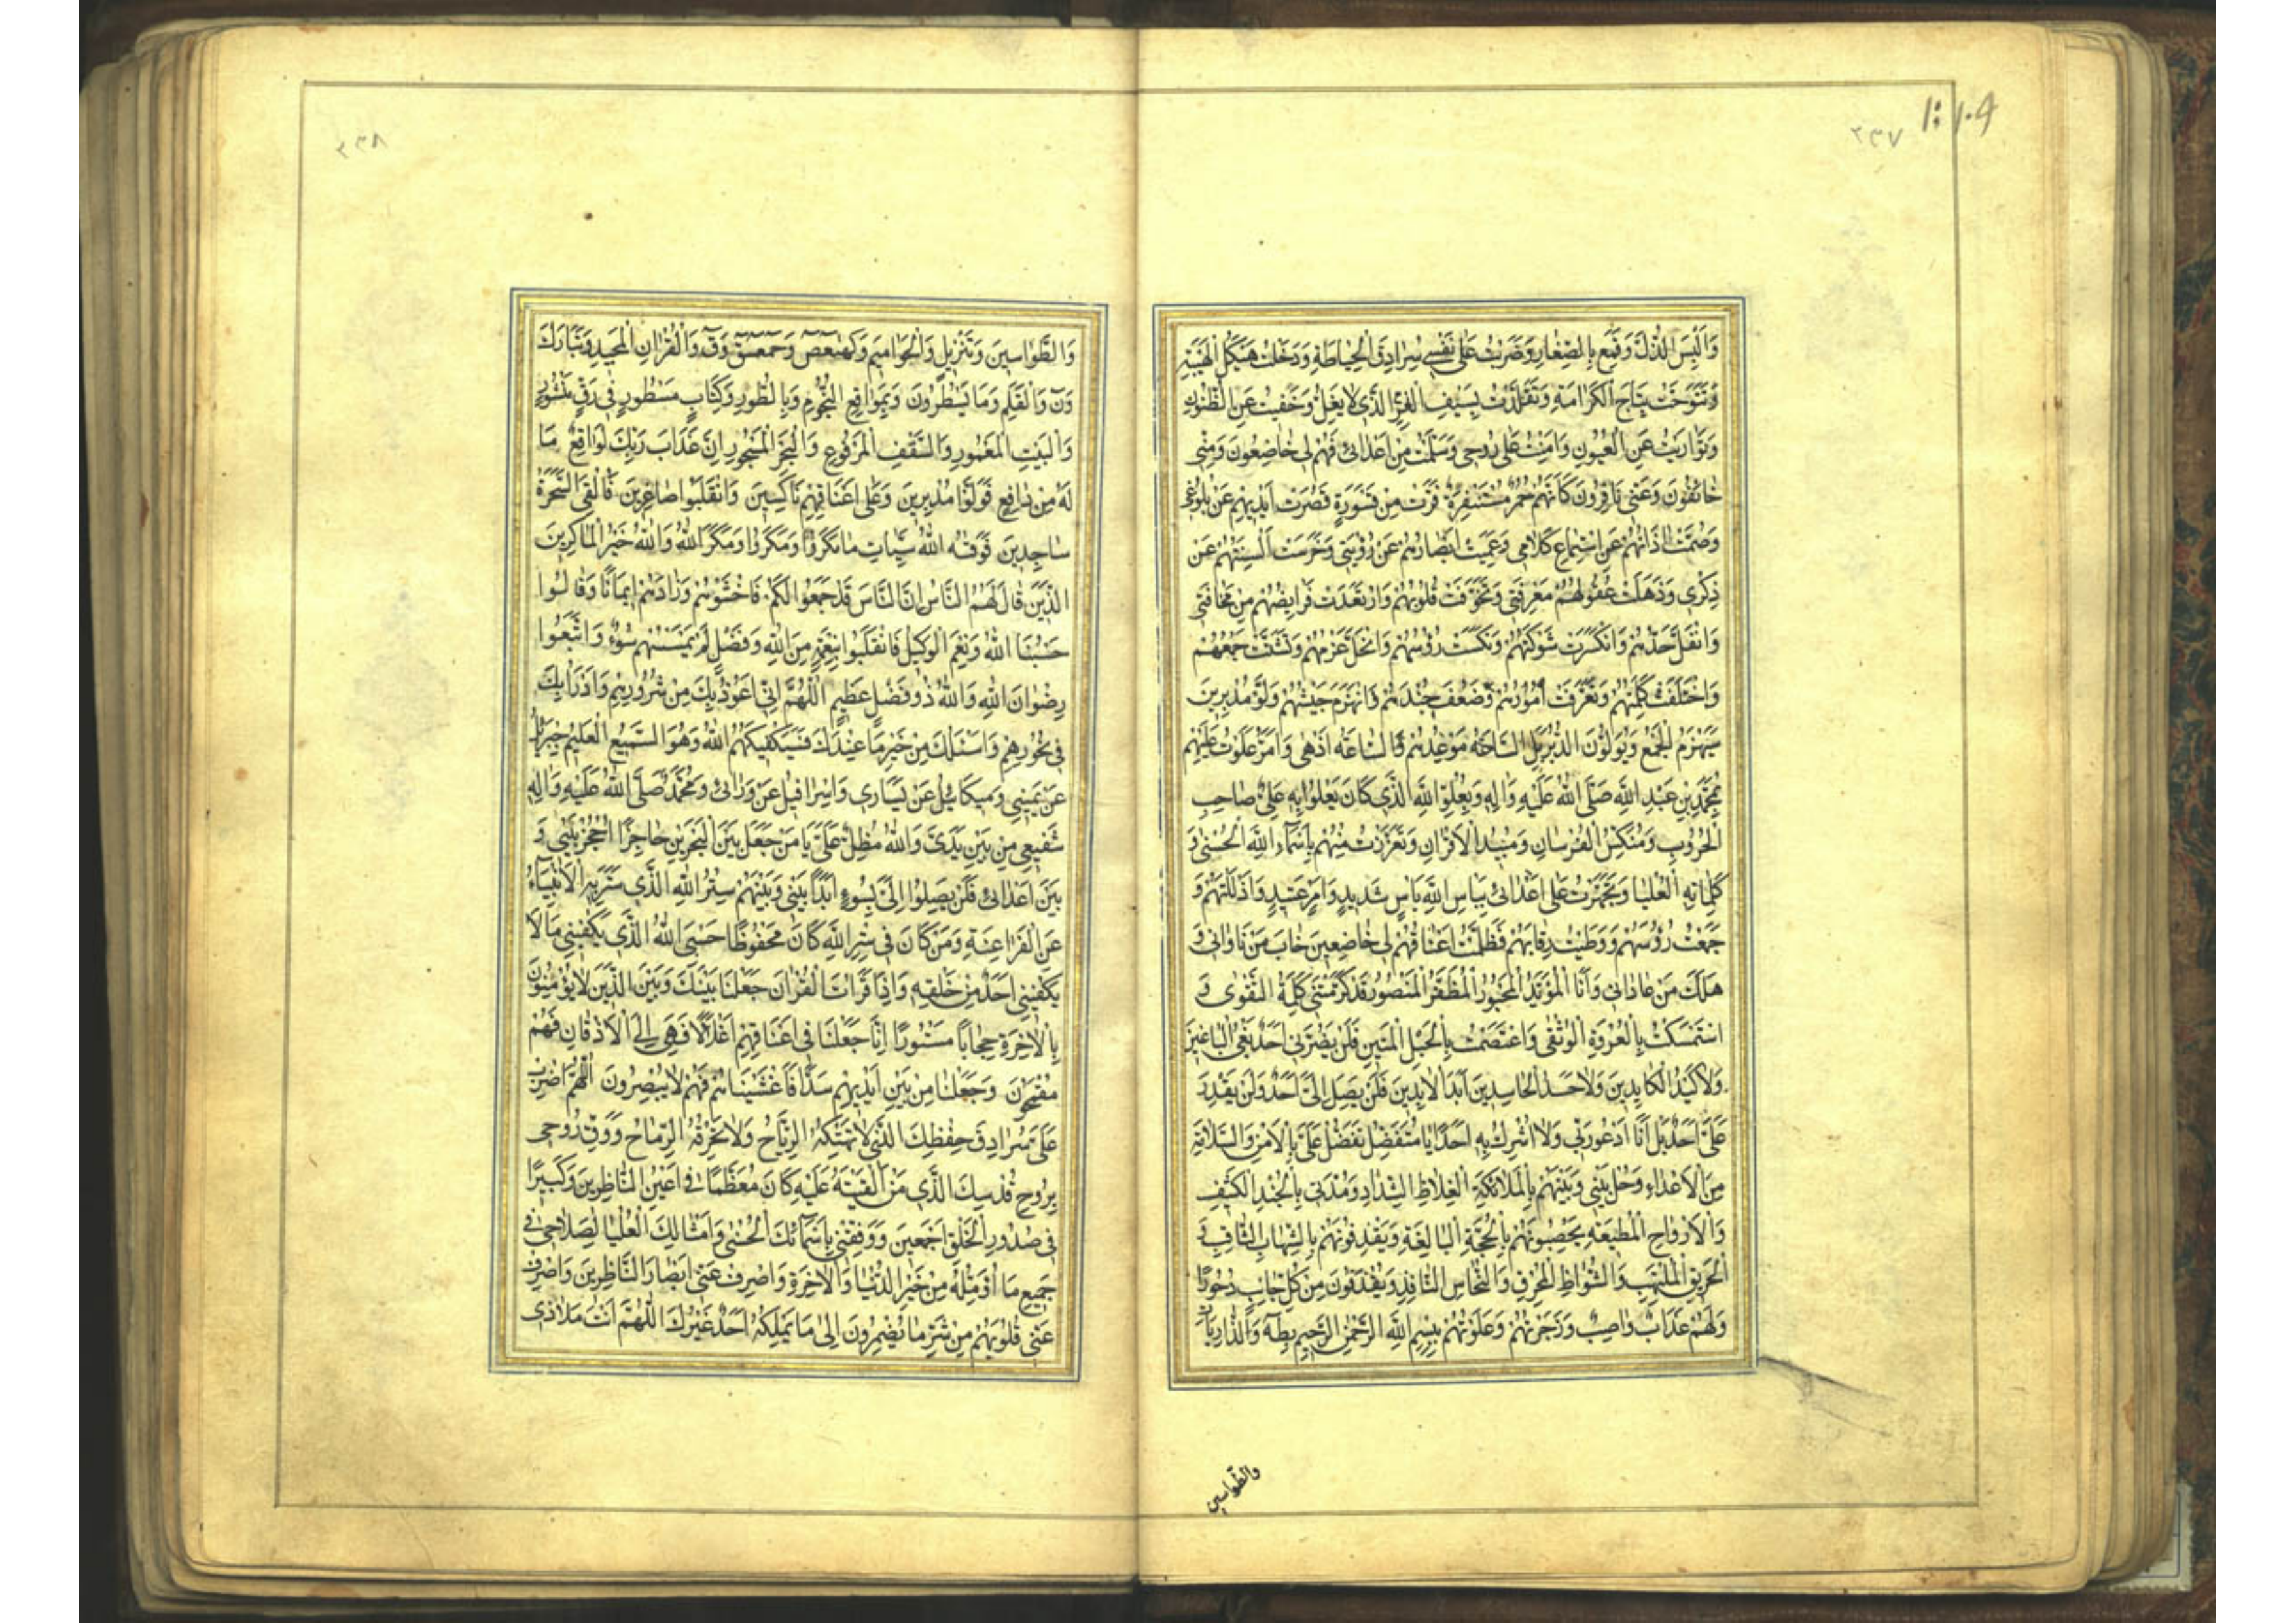 ٢٣٧
١٠٩
وَالْبِسَ الذُّلَّ وَقُمِعَ بِالصِّغَارِ وَضَرَبْتُ عَلٰى نَفْسِي سُرَادِقَ الْحِيَاطَةِ وَدَخَلْتُ هَيْكَلَ الْهَيْبَةِ
وَتَتَوَّجْتُ بِتَاجِ الْكَرَامَةِ وَتَقَلَّدْتُ بِسَيْفِ الْعِزِّ الَّذِي لَا يُفَلُّ وَخَفِيتُ عَنِ الظُّنُونِ
وَتَوَارَيْتُ عَنِ الْعُيُونِ وَاَمِنْتُ عَلٰى رُوحِي وَسَلِمْتُ مِنْ اَعْدَائِي فَهُمْ لِي خَاضِعُونَ وَمِنِّي
خَائِفُونَ وَعَنِّي نَافِرُونَ كَاَنَّهُمْ حُمُرٌ مُسْتَنْفِرَةٌ فَرَّتْ مِنْ قَسْوَرَةٍ قَصُرَتْ اَيْدِيهِمْ عَنْ بُلُوغِي
وَصُمَّتْ اٰذَانُهُمْ عَنِ اسْتِمَاعِ كَلَامِي وَعَمِيَتْ اَبْصَارُهُمْ عَنْ رُؤْيَتِي وَخَرِسَتْ اَلْسِنَتُهُمْ عَنْ
ذِكْرِي وَذَهَلَتْ عُقُولُهُمْ مَعْرِفَتِي وَتَخَوَّفَتْ قُلُوبُهُمْ وَارْتَعَدَتْ فَرَايِصُهُمْ مِنْ مَخَافَتِي
وَانْفَلَّ حَدُّهُمْ وَانْكَسَرَتْ شَوْكَتُهُمْ وَنُكِسَتْ رُؤُسُهُمْ وَانْحَلَّ عَزْمُهُمْ وَتَشَتَّتَ جَمْعُهُمْ
وَاخْتَلَفَتْ كَلِمَتُهُمْ وَتَفَرَّقَتْ اُمُورُهُمْ وَضَعُفَ جُنْدُهُمْ وَانْهَزَمَ جَيْشُهُمْ وَلَّوْ مُدْبِرِينَ
سَيُهْزَمُ الْجَمْعُ وَيُوَلُّونَ الدُّبُرَ بَلِ السَّاعَةُ مَوْعِدُهُمْ وَالسَّاعَةُ اَدْهٰى وَاَمَرُّ عَلَوْتُ عَلَيْهِمْ
بِمُحَمَّدِ بْنِ عَبْدِ اللّٰهِ صَلَّى اللّٰهُ عَلَيْهِ وَاٰلِهِ وَبِعُلُوِّ اللّٰهِ الَّذِي كَانَ يَعْلُوا بِهِ عَلِيٌّ صَاحِبِ
الْحُرُوبِ وَمُنَكِّسُ الْفُرْسَانِ وَمُبِيدُ الْاَقْرَانِ وَتَعَزَّزْتُ مِنْهُمْ بِاَسْمَاءِ اللّٰهِ الْحُسْنٰى وَ
كَلِمَاتِهِ الْعُلْيَا وَتَجَهَّزْتُ عَلٰى اَعْدَائِي بِبَاْسِ اللّٰهِ بَاْسٍ شَدِيدٍ وَاَمْرٍ عَتِيدٍ وَاَذْلَلْتُهُمْ وَ
جَمَعْتُ رُؤُسَهُمْ وَوَطِيْتُ رِقَابَهُمْ فَظَلَّتْ اَعْنَاقُهُمْ لِي خَاضِعِينَ خَابَ مَنْ نَاوَانِي وَ
هَلَكَ مَنْ عَادَانِي وَاَنَا الْمُؤَيَّدُ الْمَحْبُورُ الْمُظَفَّرُ الْمَنْصُورُ قَدْ كَرَّمَتْنِي كَلِمَةُ التَّقْوٰى وَ
اسْتَمْسَكْتُ بِالْعُرْوَةِ الْوُثْقٰى وَاعْتَصَمْتُ بِالْحَبْلِ الْمَتِينِ فَلَنْ يَضُرَّنِي اَحَدٌ بَغْيُ الْبَاغِينَ
وَلَا كَيْدُ الْكَايِدِينَ وَلَا حَسَدُ الْحَاسِدِينَ اَبَدَ الْاٰبِدِينَ فَلَنْ يَصِلَ اِلَيَّ اَحَدٌ وَلَنْ يَقْدِرَ
عَلَيَّ اَحَدٌ بَلْ اَنَا اَدْعُو رَبِّي وَلَا اُشْرِكُ بِهِ اَحَدًا يَا مُتَفَضِّلُ تَفَضَّلْ عَلَيَّ بِالْاَمْنِ وَالسَّلَامَةِ
مِنَ الْاَعْدَاءِ وَحُلْ بَيْنِي وَبَيْنَهُمْ بِالْمَلَائِكَةِ الْغِلَاظِ الشِّدَادِ وَمُدَّنِي بِالْجُنْدِ الْكَثِيفِ
وَالْاَرْوَاحِ الْمُطِيعَةِ يَحْصِبُونَهُمْ بِالْحُجَّةِ الْبَالِغَةِ وَيَقْذِفُونَهُمْ بِالشِّهَابِ الثَّاقِبِ وَ
الْحَرِيقِ الْمُلْتَهِبِ وَالشُّوَاظِ الْمُحْرِقِ وَالنُّحَاسِ النَّافِذِ وَيُقْذَفُونَ مِنْ كُلِّ جَانِبٍ دُحُورًا
وَلَهُمْ عَذَابٌ وَاصِبٌ وَزَجَرْتُهُمْ وَعَلَوْتُهُمْ بِبِسْمِ اللّٰهِ الرَّحْمٰنِ الرَّحِيمِ بِطٰهٰ وَالذَّارِيَاتِ
والطواسين
٢٣٨
وَالطَّوَاسِينَ وَتَنْزِيلٍ وَالْحَوَامِيمَ وَكٓهٰيٰعٓصٓ وَحٰمٓعٓسٓقٓ وَقٓ وَالْقُرْاٰنِ الْمَجِيدِ وَتَبَارَكَ
وَنٓ وَالْقَلَمِ وَمَا يَسْطُرُونَ وَبِمَوَاقِعِ النُّجُومِ وَبِالطُّورِ وَكِتَابٍ مَسْطُورٍ فِي رَقٍّ مَنْشُورٍ
وَالْبَيْتِ الْمَعْمُورِ وَالسَّقْفِ الْمَرْفُوعِ وَالْبَحْرِ الْمَسْجُورِ اِنَّ عَذَابَ رَبِّكَ لَوَاقِعٌ مَا
لَهُ مِنْ دَافِعٍ فَوَلَّوْا مُدْبِرِينَ وَعَلٰى اَعْنَاقِهِمْ نَاكِسِينَ وَانْقَلَبُوا صَاغِرِينَ فَاُلْقِيَ السَّحَرَةُ
سَاجِدِينَ فَوَقٰهُ اللّٰهُ سَيِّاٰتِ مَا مَكَرُوا وَمَكَرُوا وَمَكَرَ اللّٰهُ وَاللّٰهُ خَيْرُ الْمَاكِرِينَ
الَّذِينَ قَالَ لَهُمُ النَّاسُ اِنَّ النَّاسَ قَدْ جَمَعُوا لَكُمْ فَاخْشَوْهُمْ وَزَادَهُمْ اِيمَانًا وَقَالُوا
حَسْبُنَا اللّٰهُ وَنِعْمَ الْوَكِيلُ فَانْقَلَبُوا بِنِعْمَةٍ مِنَ اللّٰهِ وَفَضْلٍ لَمْ يَمْسَسْهُمْ سُوءٌ وَاتَّبَعُوا
رِضْوَانَ اللّٰهِ وَاللّٰهُ ذُو فَضْلٍ عَظِيمٍ اَللّٰهُمَّ اِنِّي اَعُوذُ بِكَ مِنْ شُرُورِهِمْ وَاَدْرَاُ بِكَ
فِي نُحُورِهِمْ وَاَسْئَلُكَ مِنْ خَيْرِ مَا عِنْدَكَ فَسَيَكْفِيكَهُمُ اللّٰهُ وَهُوَ السَّمِيعُ الْعَلِيمُ جِبْرِئِيلُ
عَنْ يَمِينِي وَمِيكَائِيلُ عَنْ يَسَارِي وَاِسْرَافِيلُ عَنْ وَرَائِي وَمُحَمَّدٌ صَلَّى اللّٰهُ عَلَيْهِ وَاٰلِهِ
شَفِيعِي مِنْ بَيْنِ يَدَيَّ وَاللّٰهُ مُظِلٌّ عَلَيَّ يَا مَنْ جَعَلَ بَيْنَ الْبَحْرَيْنِ حَاجِزًا اُحْجُزْ بَيْنِي وَ
بَيْنَ اَعْدَائِي فَلَنْ يَصِلُوا اِلَيَّ بِسُوءٍ اَبَدًا بَيْنِي وَبَيْنَهُمْ سِتْرُ اللّٰهِ الَّذِي سَتَرَ بِهِ الْاَنْبِيَاءُ
عَنِ الْفَرَاعِنَةِ وَمَنْ كَانَ فِي سِتْرِ اللّٰهِ كَانَ مَحْفُوظًا حَسْبِيَ اللّٰهُ الَّذِي يَكْفِينِي مَا لَا
يَكْفِينِي اَحَدٌ مِنْ خَلْقِهِ وَاِذَا قَرَاْتَ الْقُرْاٰنَ جَعَلْنَا بَيْنَكَ وَبَيْنَ الَّذِينَ لَا يُؤْمِنُونَ
بِالْاٰخِرَةِ حِجَابًا مَسْتُورًا اِنَّا جَعَلْنَا فِي اَعْنَاقِهِمْ اَغْلَالًا فَهِيَ اِلَى الْاَذْقَانِ فَهُمْ
مُقْمَحُونَ وَجَعَلْنَا مِنْ بَيْنِ اَيْدِيهِمْ سَدًّا فَاَغْشَيْنَاهُمْ فَهُمْ لَا يُبْصِرُونَ اَللّٰهُمَّ اضْرِبْ
عَلَيَّ سُرَادِقَ حِفْظِكَ الَّذِي لَا تَهْتِكُهُ الرِّيَاحُ وَلَا تَخْرِقُهُ الرِّمَاحُ وَوَقِّ رُوحِي
بِرُوحِ قُدْسِكَ الَّذِي مَنْ اَلْقَيْتَهُ عَلَيْهِ كَانَ مُعَظَّمًا فِي اَعْيُنِ النَّاظِرِينَ وَكَبِيرًا
فِي صُدُورِ الْخَلْقِ اَجْمَعِينَ وَوَفِّقْنِي بِاَسْمَائِكَ الْحُسْنٰى وَاَمْثَالِكَ الْعُلْيَا لِصَلَاحِي فِي
جَمِيعِ مَا اُؤَمِّلُهُ مِنْ خَيْرِ الدُّنْيَا وَالْاٰخِرَةِ وَاصْرِفْ عَنِّي اَبْصَارَ النَّاظِرِينَ وَاصْرِفْ
عَنِّي قُلُوبَهُمْ مِنْ شَرِّ مَا يُضْمِرُونَ اِلٰى مَا يَمْلِكُهُ اَحَدٌ غَيْرُكَ اَللّٰهُمَّ اَنْتَ مَلَاذِي